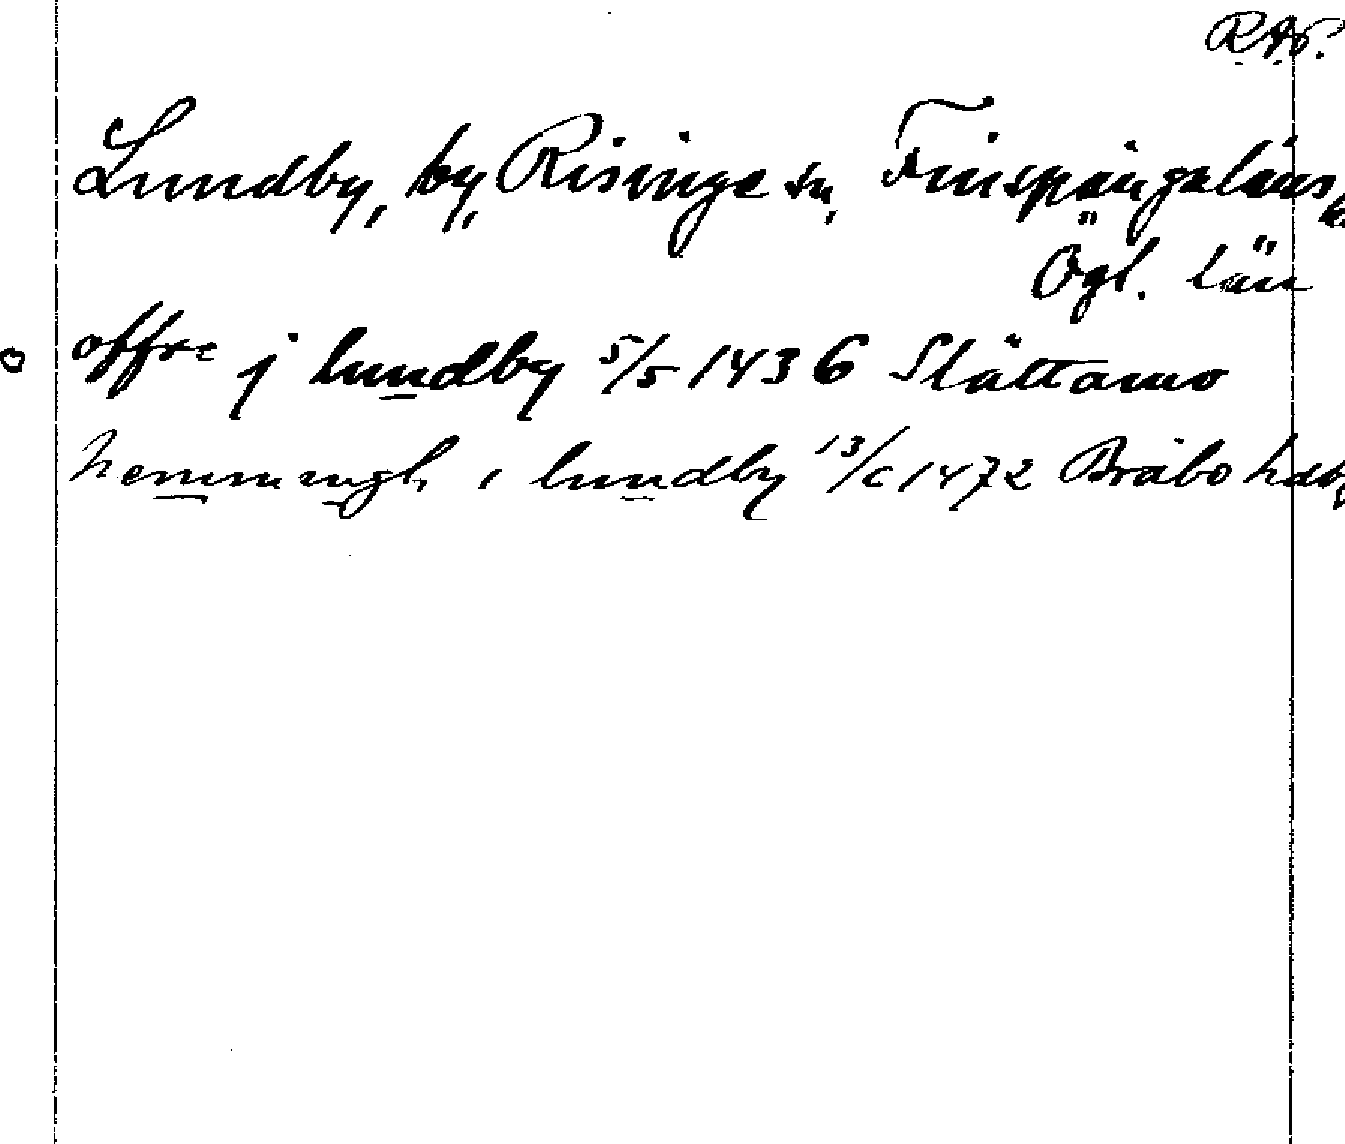 RAP.
Lundby, by, Risinge sn, Finspångaläns h
Ögl. län
offre j lundby 5/5 1436 Slättamo
hemmingh i lundby 13/6 1472 Bråbo hds